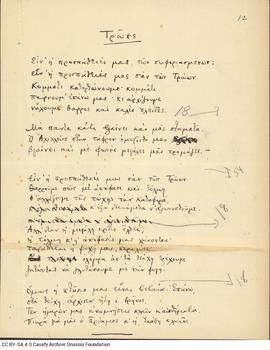 12
Τρώες
Είν' η προσπάθειές μας, των συφοριασμένων·
είν' η προσπάθειές μας σαν των Τρώων.
Κομμάτι κατορθώνουμε· κομμάτι
παίρνουμ' επάνω μας· κι αρχίζουμε
νάχουμε θάρρος και καλές ελπίδες.
18
Μα πάντα κάτι βγαίνει και μας σταματά.
Ο Αχιλλεύς στην τάφρον εμπροστά μας
βγαίνει και με φωνές μεγάλες μάς τρομάζει.—
Είν' η προσπάθειές μας σαν των Τρώων.
Θαρρούμε πως με απόφασι και τόλμη
θ' αλλάξουμε της τύχης την καταφορά,
Αλλ' όταν η μεγάλη κρίσις έλθει,
η τόλμη κ' η απόφασίς μας χάνονται·
ταράττεται η ψυχή μας, παραλύει·
κι ολόγυρα απ' τα τείχη τρέχουμε
ζητώντας να γλυτώσουμε με την φυγή.
Όμως η πτώσις μας είναι βεβαία. Επάνω,
στα τείχη, άρχισεν ήδη ο θρήνος.
Των ημερών μας αναμνήσεις κλαίν κ' αισθήματα.
Πικρά για μας ο Πρίαμος κ' η Εκάβη κλαίνε.
CC BY-SA 4.0 Cavafy Archive Onassis Foundation